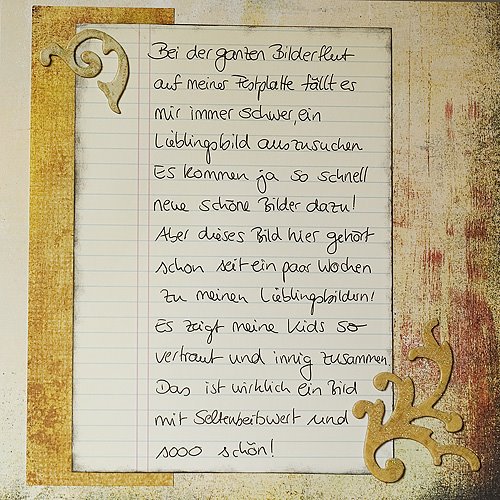 Bei der ganzen Bilderflut
auf meiner Festplatte fällt es
mir immer schwer, ein
Lieblingsbild auszusuchen
Es kommen ja so schnell
neue schöne Bilder dazu!
Aber dieses Bild hier gehört
schon seit ein paar Wochen
zu meinen Lieblingsbildern!
Es zeigt meine Kids so
vertraut und innig zusammen
Das ist wirklich ein Bild
mit Seltenheitswert und
sooo schön!